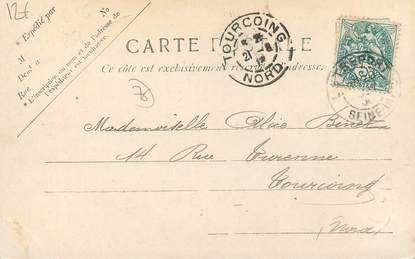 12€
* Expédié par
No
M
Dem
Rue
* L'inscription du nom et de l'adresse de
l'expéditeur est facultative.
CARTE
Ce côté est exclusivement adresse.
TOURCOING
NORD
SEINE
Mademoiselle Alice Binet
14 Rue Turenne
Tourcoing
(Nord)